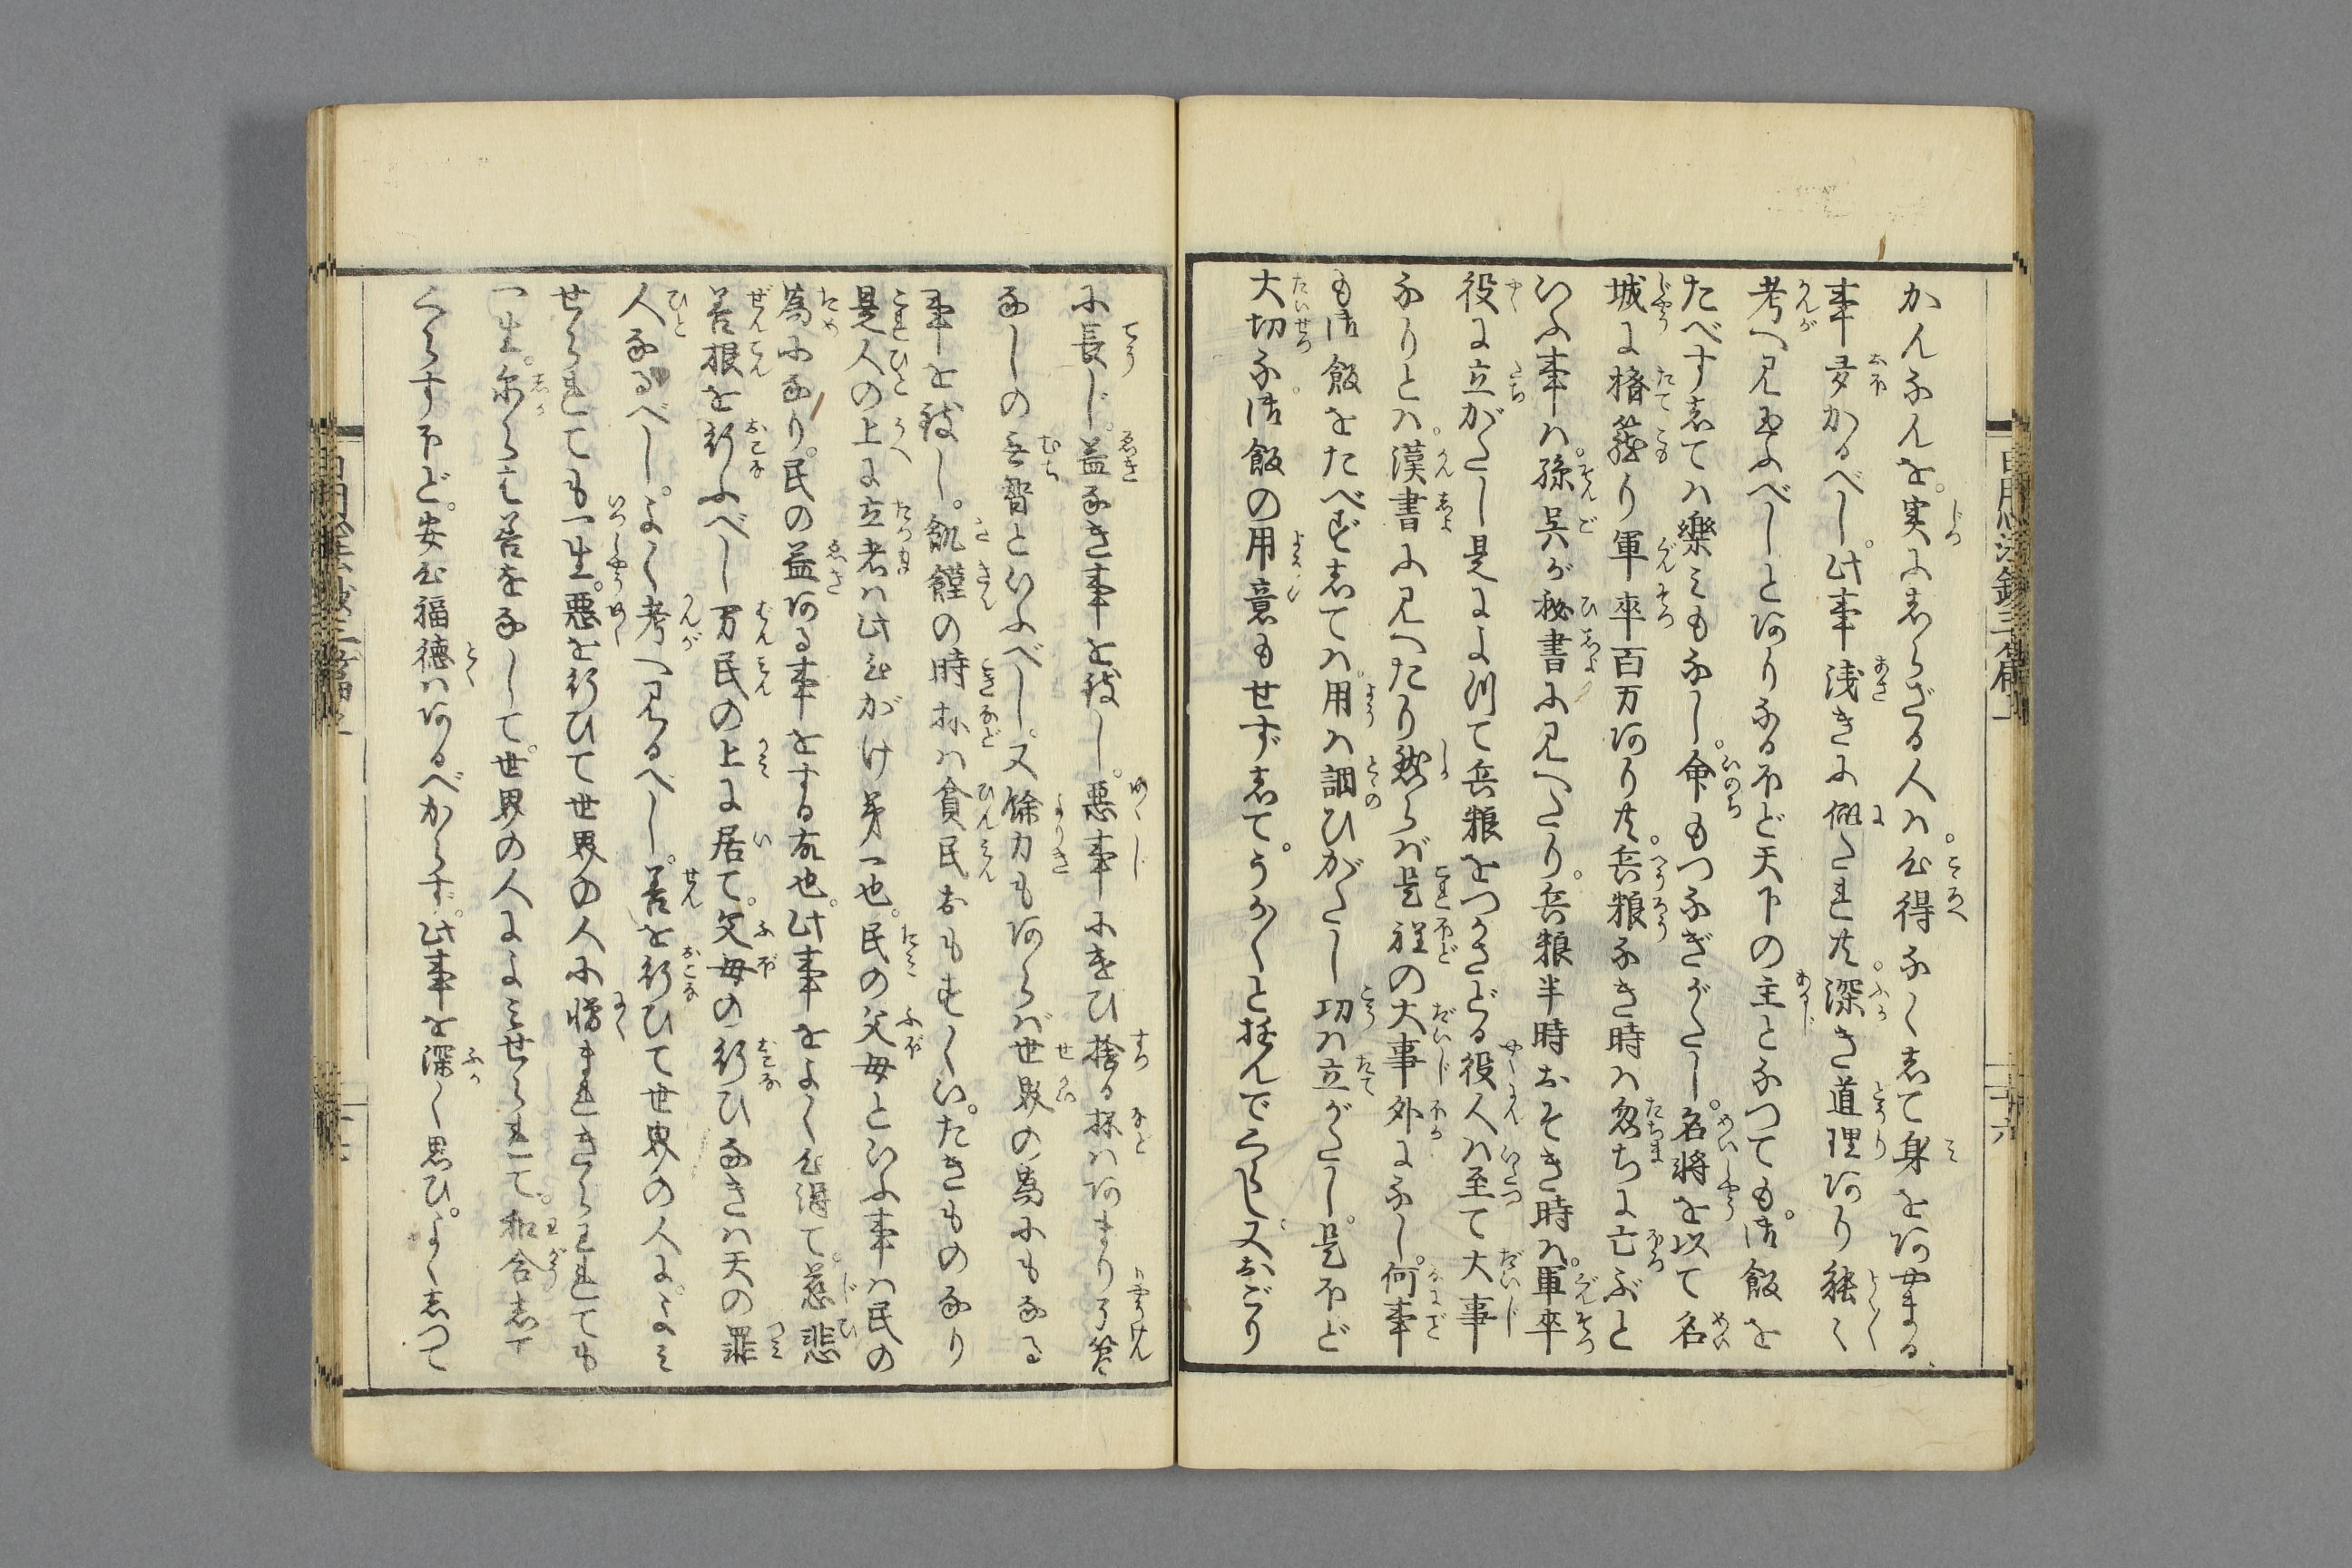 かんなんを。実にしらざる人ハ。心得なくして身をあやまる
事多かるべし。此事浅きに似たれ共。深き道理あり能々
考へ見玉ふべしとありなるほど天下の主となつても。御飯を
たべずしてハ樂みもなし。命もつなぎがたし。名将を以て名
城に楯籠り軍卒百万あり共。兵粮なき時ハ忽ちに亡ぶと
いふ事ハ。孫呉が秘書に見へたり。兵粮半時おそき時ハ。軍卒
役に立がたし是によつて兵粮をつかさどる役人ハ至て大事
なりとハ。漢書に見へたり然らバ是程の大事外になし。何事
も御飯をたべずしてハ。用ハ調ひがたし功ハ立がたし。是ほど
大切な。御飯の用意もせずして。うか〳〵と遊んでくらし。又おごり
に長じ。益なき事を致し。悪事に遣ひ捨る抔ハあまり了簡
なしの無智といふべし。又餘力もあらバ世界の為にもなる
事を致し。飢饉の時抔ハ貧民おもすくい。たきものなり
是人の上に立者ハ此心がけ第一也。民の父母といふ事ハ民の
為になり。民の益ある事をする故也。此事をよく心得て。慈悲
善根を行ふべし万民の上に居て。父母の行ひなきハ天の罪
人なるべし。よく考へ見るべし。善を行ひて世界の人に。よミ
せられても一生。悪を行ひて世界の人に憎まれきらわれても
一生。尓らバ善をなして。世界の人によミせられて。和合して
くらすほど。安心福徳ハあるべからず。此事を深く思ひ。よくしつて